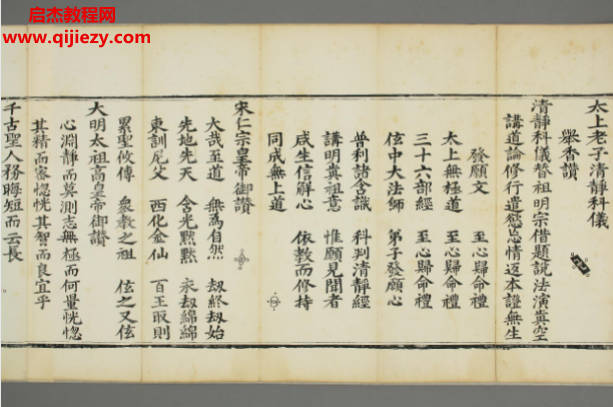 启杰教程网
www.qijiezy.com
太上老子清靜科儀
舉香讚
清靜科儀替祖明宗借題說法演真空
講道論修行遣慾忘情返本證無生
發願文 至心歸命禮
太上無極道 至心歸命禮
三十六部經 至心歸命禮
玄中大法師 弟子發願心
普利諸含識 科判清靜經
講明眞祖意 惟願見聞者
咸生信解心 依教而修持
同成無上道
宋仁宗皇帝御讚
大哉至道 無為自然 劫終劫始
先地先天 含光黙黙 永劫綿綿
東訓尼父 西化金仙 百王取則
累聖攸傳 衆教之祖 玄之又玄
大明太祖高皇帝御讚
心淵靜而莫測志無極而何量恍惚
其精而密惚恍其智而良宜乎
千古聖人務晦短而云長